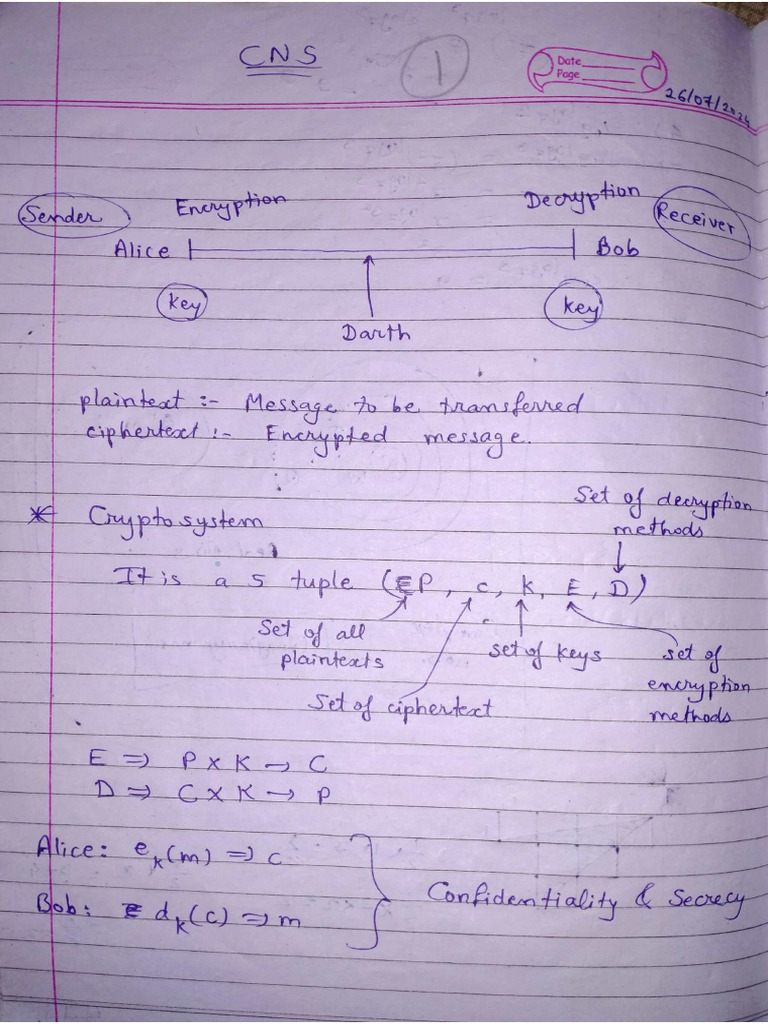 CNS
1
Date
Page
26/07/2024
Encryption
Decryption
Sender
Receiver
Alice
Bob
Key
Key
Darth
plaintext :- Message to be transferred
ciphertext :- Encrypted message.
Set of decryption
methods
* Crypto system
It is a 5 tuple (P, C, K, E, D)
Set of all
plaintexts
set of keys
set of
encryption
methods
Set of ciphertext
E ⇒ P x K → C
D ⇒ C x K → P
Alice: e_k(m) ⇒ c
Bob: d_k(c) ⇒ m
Confidentiality & Secrecy